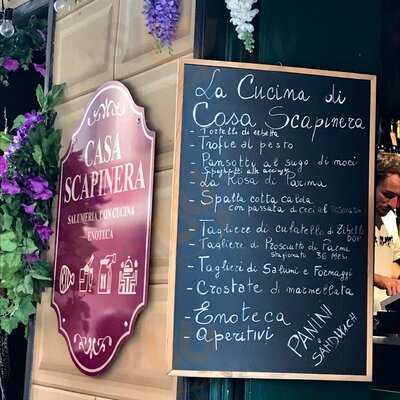 CASA
SCAPINERA
SALUMERIA CON CUCINA
ENOTECA
La Cucina di
Casa Scapinera
- Tortelli di erbetta
- Trofie al pesto
- Pansotti al sugo di noci
Spaghetti alle acciughe
- La Rosa di Parma
- Spalla cotta calda
con passata di ceci al rosmarino
- Tagliere di culatello di Zibello
DOP
- Tagliere di Prosciutto di Parma
stagionato 36 mesi
- Taglieri di Salumi e Formaggi
- Crostate di marmellata
- Enoteca
- Aperitivi
PANINI
SANDWICH